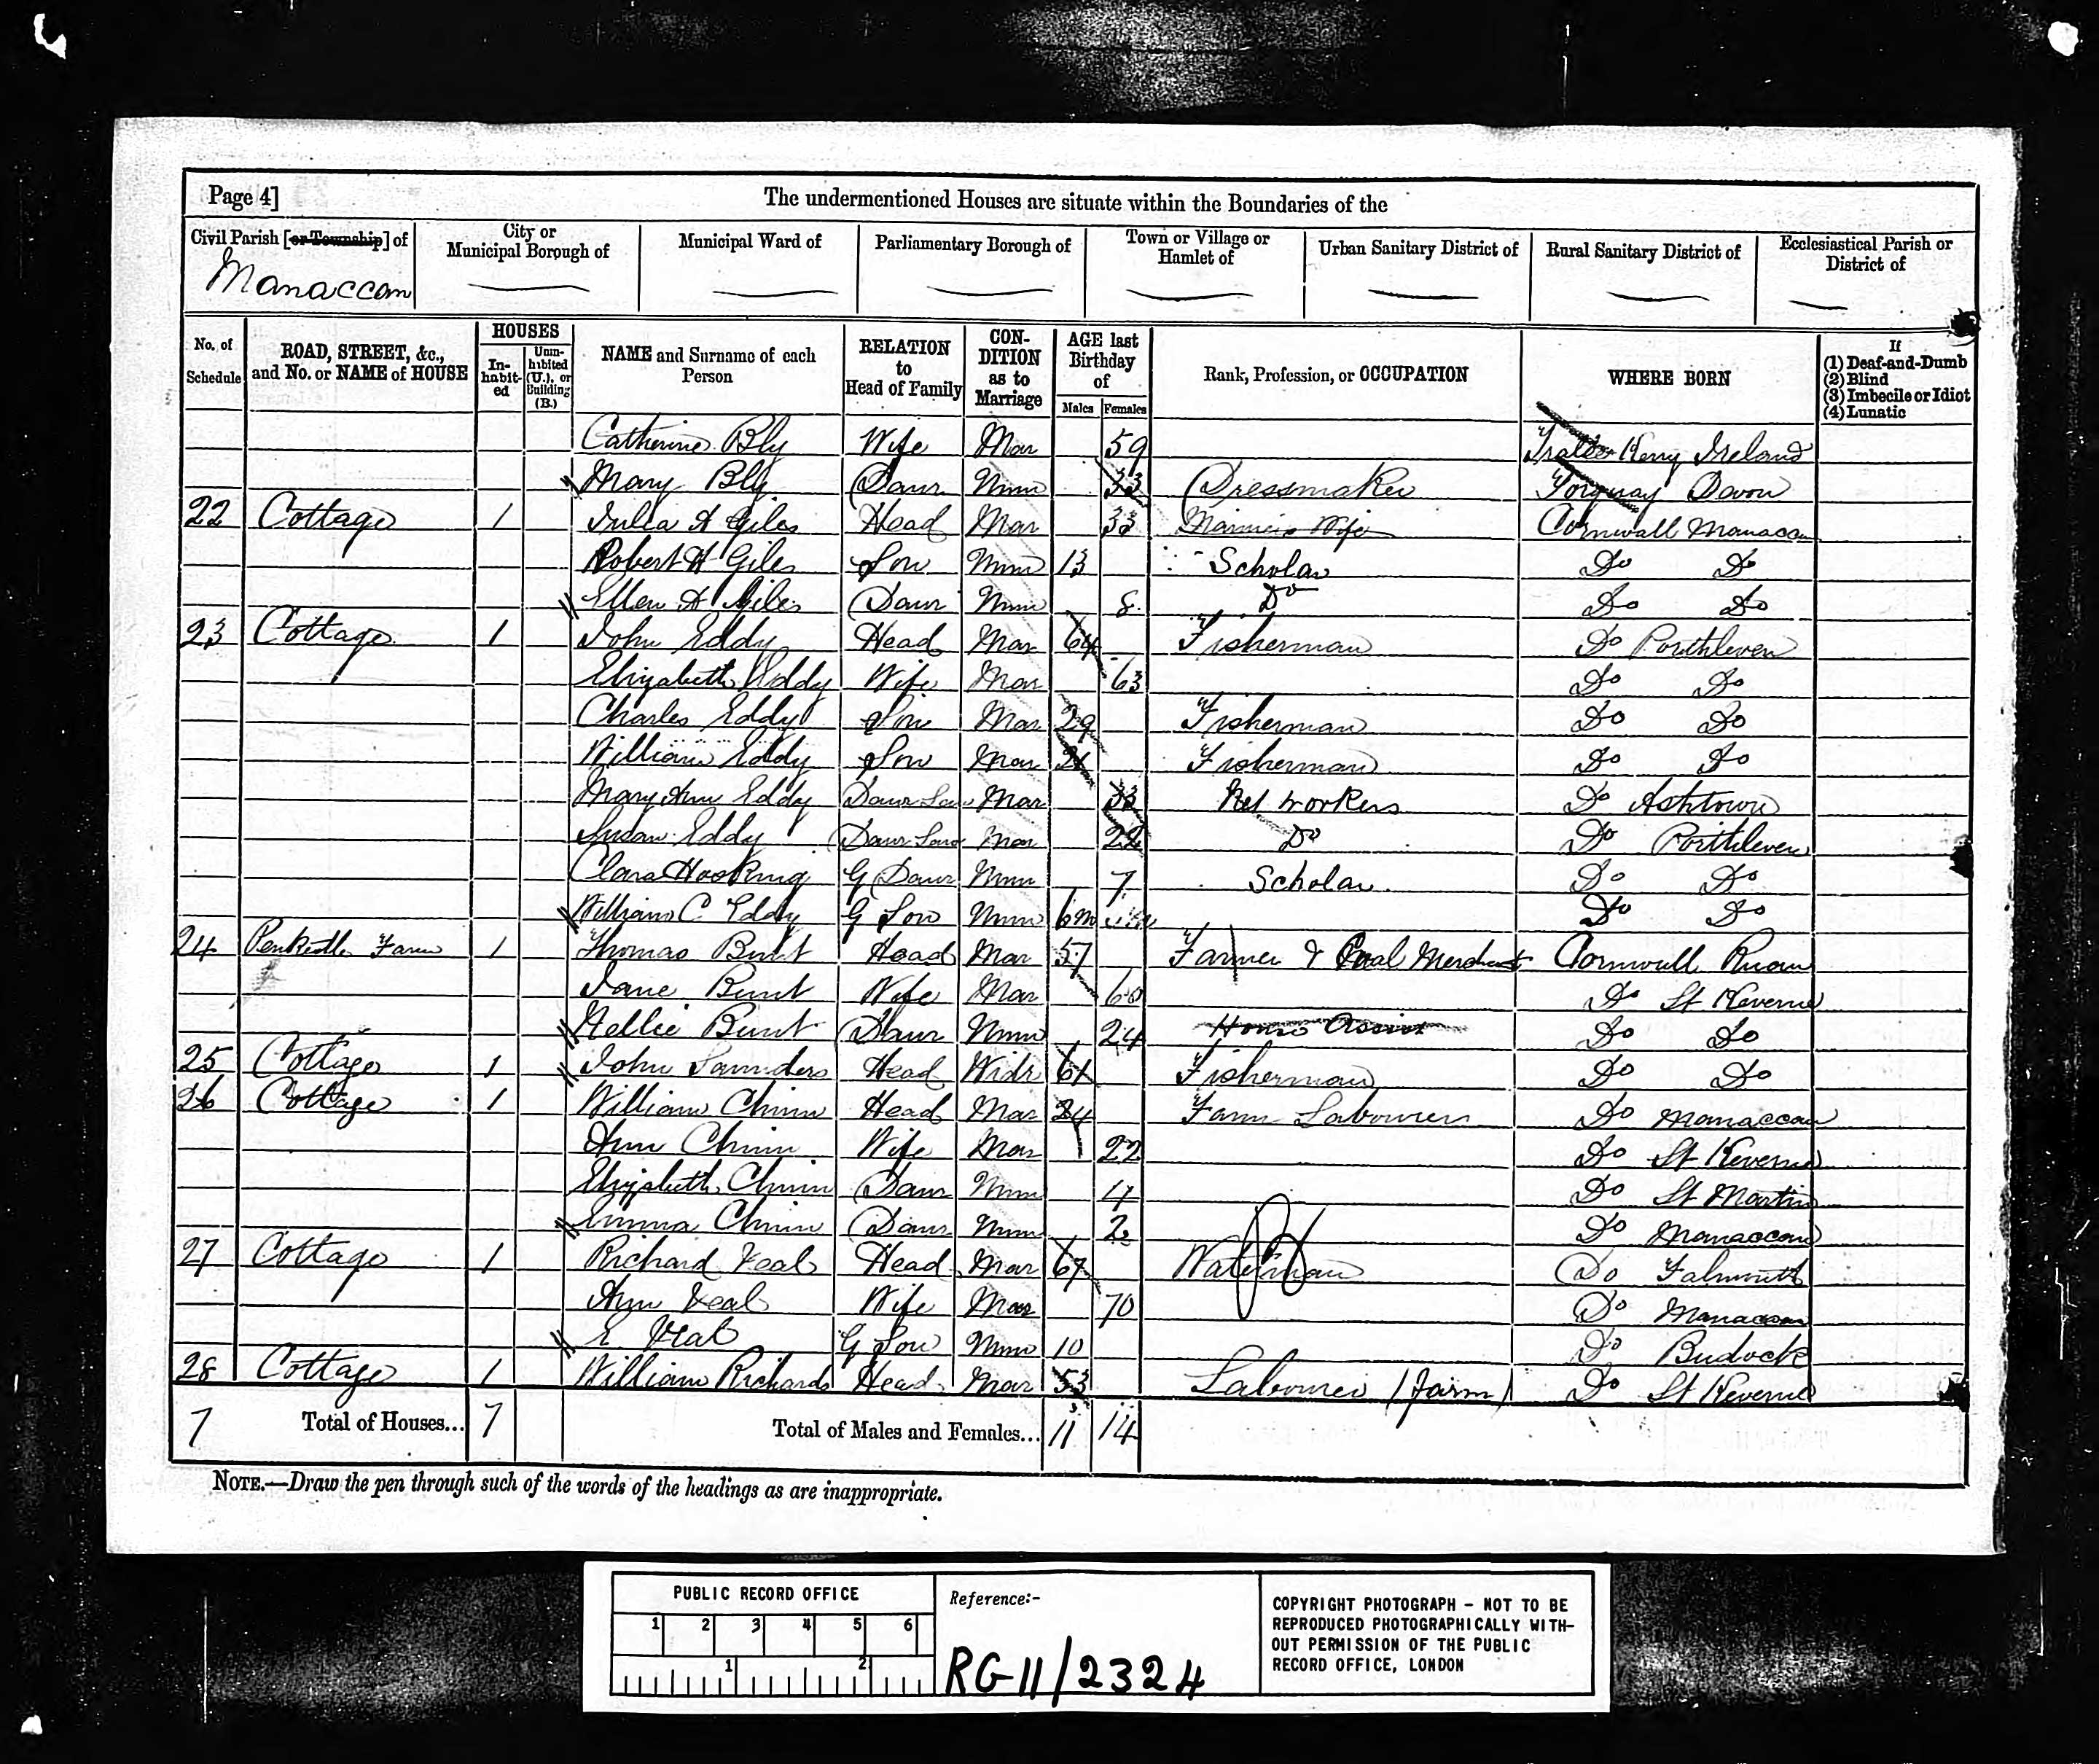 Page 4] The undermentioned Houses are situate within the Boundaries of the
Civil Parish [or Township] of City or Municipal Borough of Municipal Ward of Parliamentary Borough of Town or Village or Hamlet of Urban Sanitary District of Rural Sanitary District of Ecclesiastical Parish or District of
Manaccan
No. of Schedule ROAD, STREET, &c., and No. or NAME of HOUSE HOUSES In-habit-ed Unin-hibited (U.), or Building (B.) NAME and Surname of each Person RELATION to Head of Family CON-DITION as to Marriage AGE last Birthday of Males Females Rank, Profession, or OCCUPATION WHERE BORN If (1) Deaf-and-Dumb (2) Blind (3) Imbecile or Idiot (4) Lunatic
Catherine Bly Wife Mar 59 Tralee Kerry Ireland
Mary Bly Daur Unm 33 Dressmaker Torquay Devon
22 Cottage 1 Julia A Giles Head Mar 33 Wife Cornwall Manaccan
Robert H Giles Son Unm 13 Scholar Do Do
Ellen A Giles Daur Unm 8 Do Do Do
23 Cottage 1 John Eddy Head Mar 64 Fisherman Do Porthleven
Elizabeth Eddy Wife Mar 63 Do Do
Charles Eddy Son Mar 29 Fisherman Do Do
William Eddy Son Mar 21 Fisherman Do Do
Mary Ann Eddy Daur Law Mar 33 Net workers Do Ashtown
Susan Eddy Daur Law Mar 22 Do Do Porthleven
Clara Hosking G Daur Unm 7 Scholar Do Do
William C Eddy G Son Unm 6m Do Do
24 Farm 1 Thomas Bunt Head Mar 57 Farmer & Coal Merchant Cornwall Ruan
Jane Bunt Wife Mar 60 Do St Keverne
Nellie Bunt Daur Unm 24 Home Assist Do Do
25 Cottage 1 John Saunders Head Widr 61 Fisherman Do Do
26 Cottage 1 William Chinn Head Mar 24 Farm Labourer Do Manaccan
Ann Chinn Wife Mar 22 Do St Keverne
Elizabeth Chinn Daur Unm 4 Do St Martin
Emma Chinn Daur Unm 2 Do Manaccan
27 Cottage 1 Richard Veal Head Mar 67 Waterman Do Falmouth
Ann Veal Wife Mar 70 Do Manaccan
E Veal G Son Unm 10 Do Budock
28 Cottage 1 William Richards Head Mar 53 Labourer (farm) Do St Keverne
7 Total of Houses... 7 Total of Males and Females... 11 14
NOTE.—Draw the pen through such of the words of the headings as are inappropriate.
PUBLIC RECORD OFFICE
1 2 3 4 5 6
1 2
Reference:-
RG 11/2324
COPYRIGHT PHOTOGRAPH - NOT TO BE
REPRODUCED PHOTOGRAPHICALLY WITH-
OUT PERMISSION OF THE PUBLIC
RECORD OFFICE, LONDON